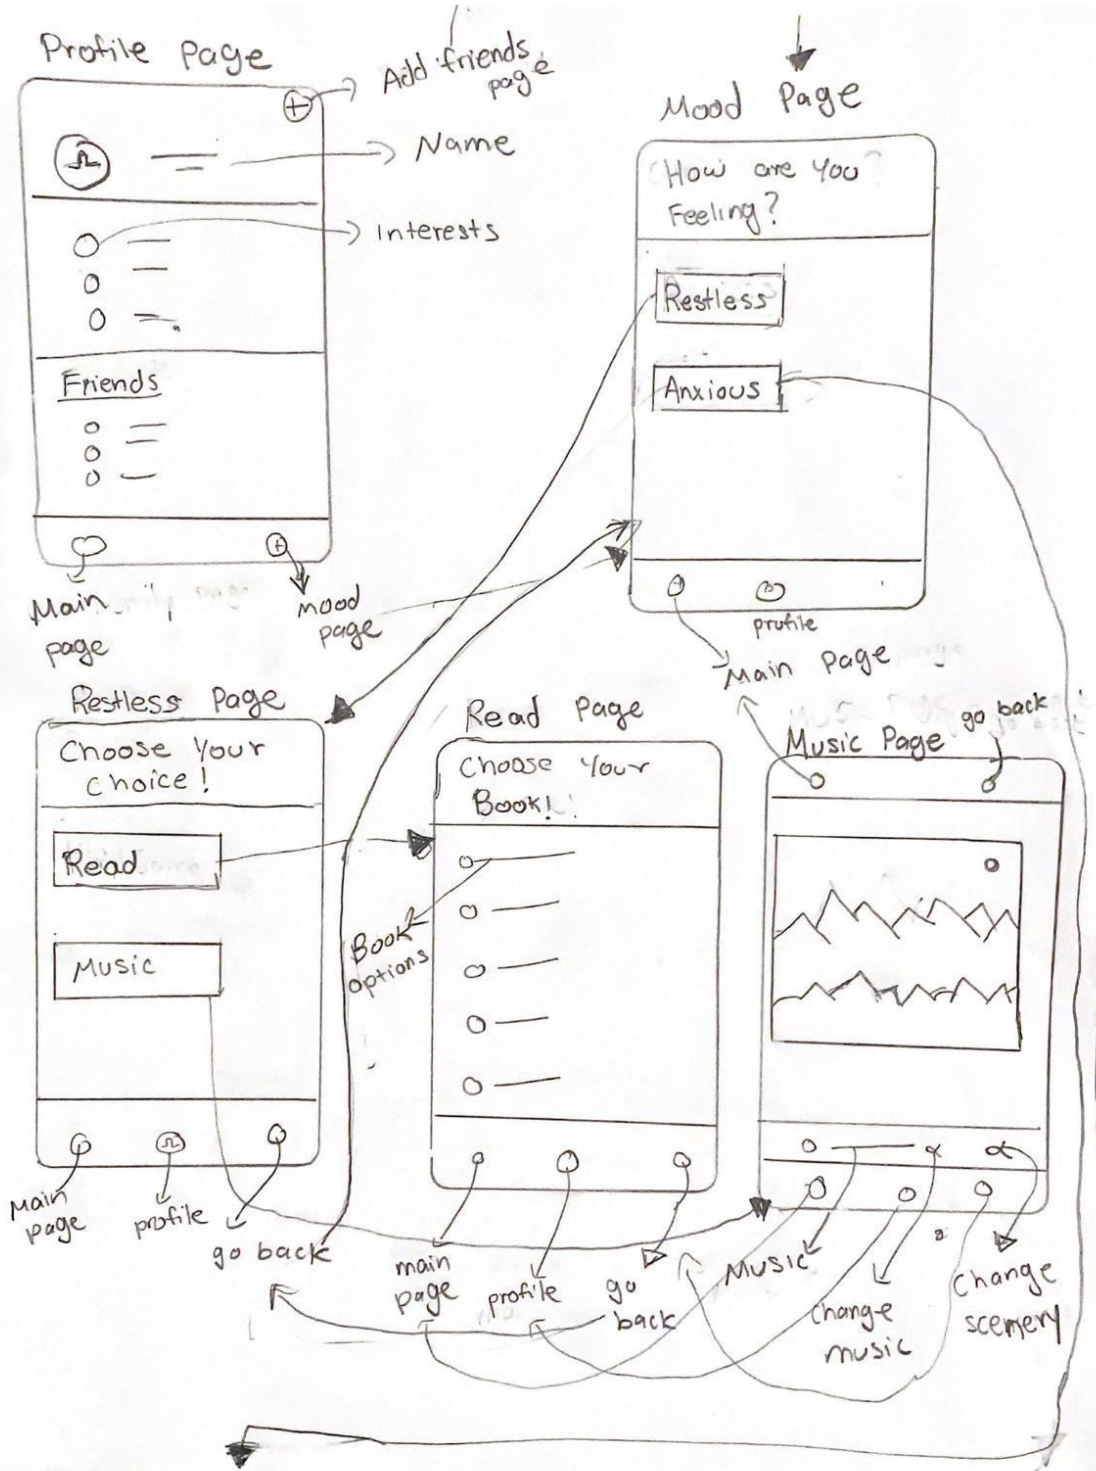 Profile Page
Add friends
page
Name
Interests
Friends
Main
page
mood
page
Mood Page
How are You
Feeling?
Restless
Anxious
profile
Main Page
Restless Page
Choose Your
Choice!
Read
Music
Main
page
profile
go back
Read Page
Choose Your
Book!
Book
options
main
page
profile
go
back
Music Page
go back
Music
change
music
Change
scemery